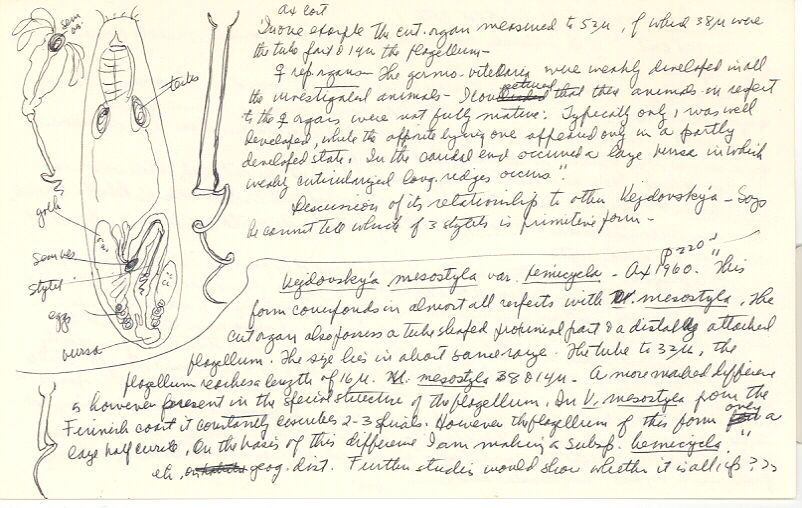 Ax cont
In one example the cut. organ measured to 52µ, of which 38µ were
the tube part & 14µ the flagellum -
♀ rep organs - The germo-vitellaria were weakly developed in all
the investigated animals - I could that these animals in respect
to the ♀ organs were not fully mature. Typically only 1 was well
developed, while the opposite lying one appeared only in a partly
developed state. In the caudal end occurred a large bursa in which
weakly cuticularized long. ridges occurs".
Discussion of its relationship to other Vejdovskýa - Says
he cannot tell which of 3 stylets is primitive form -
p 220
Vejdovskýa mesostyla var. hemicycla - Ax 1960. "This
form corresponds in almost all respects with V. mesostyla. The
cut organ also possess a tube shaped proximal part & a distally attached
flagellum. The size lies in about same range. The tube to 32µ, the
flagellum reaches a length of 16µ. V. mesostyla 38 & 14µ. A more marked difference
is however present in the special structure of the flagellum. In V. mesostyla from the
Finnish coast it constantly describes 2-3 spirals. However the flagellum of this form only a
large half circle. On the basis of this difference I am making a subsp. hemicycla."
etc, geog. dist. Further studies would show whether it is all sp ???
sem
ves.
testes
yolk
sem ves
stylet
eggs
bursa